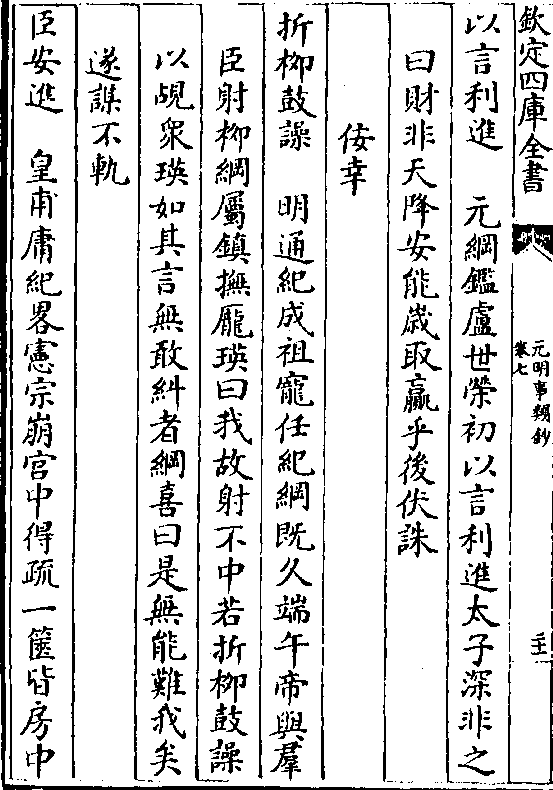 欽定四庫全書
元明事類鈔
卷七
以言利進　元綱鑑盧世榮初以言利進太子深非之
曰財非天降安能歲取贏乎後伏誅
佞幸
折柳鼓譟　明通紀成祖寵任紀綱既久端午帝與羣
臣射柳綱屬鎮撫龎瑛曰我故射不中若折柳鼓譟
以覘衆瑛如其言無敢糾者綱喜曰是無能難我矣
遂謀不軌
臣安進　皇甫庸紀畧憲宗崩宮中得疏一篋皆房中